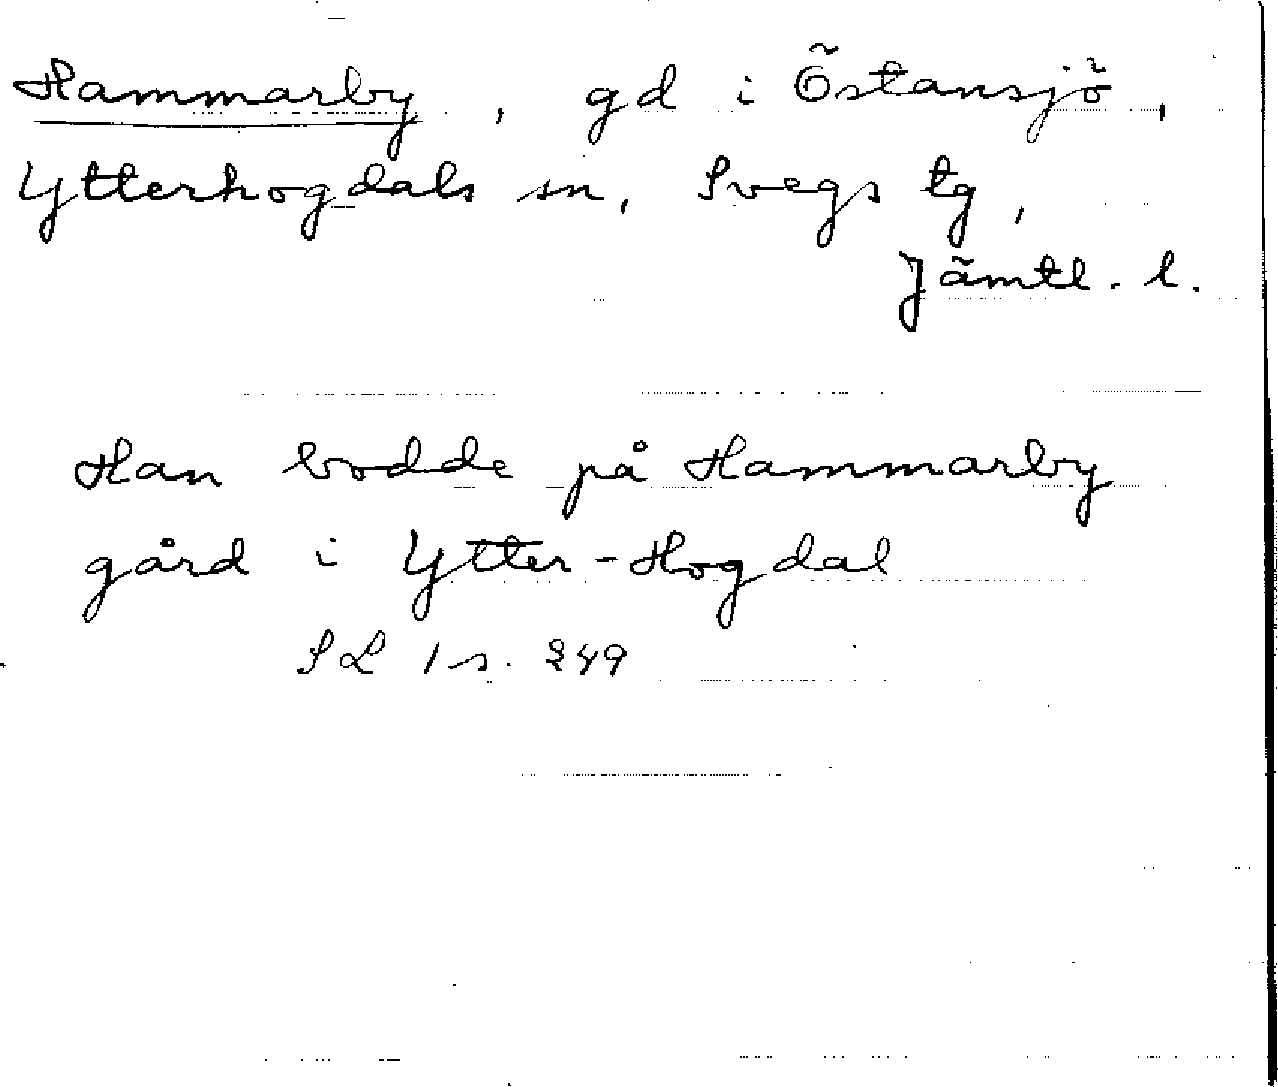 Hammarby, gd i Östansjö,
Ytterhogdals sn, Svegs tg,
Jämtl. l.
Han bodde på Hammarby
gård i Ytter-Hogdal
SL 1 s. 249